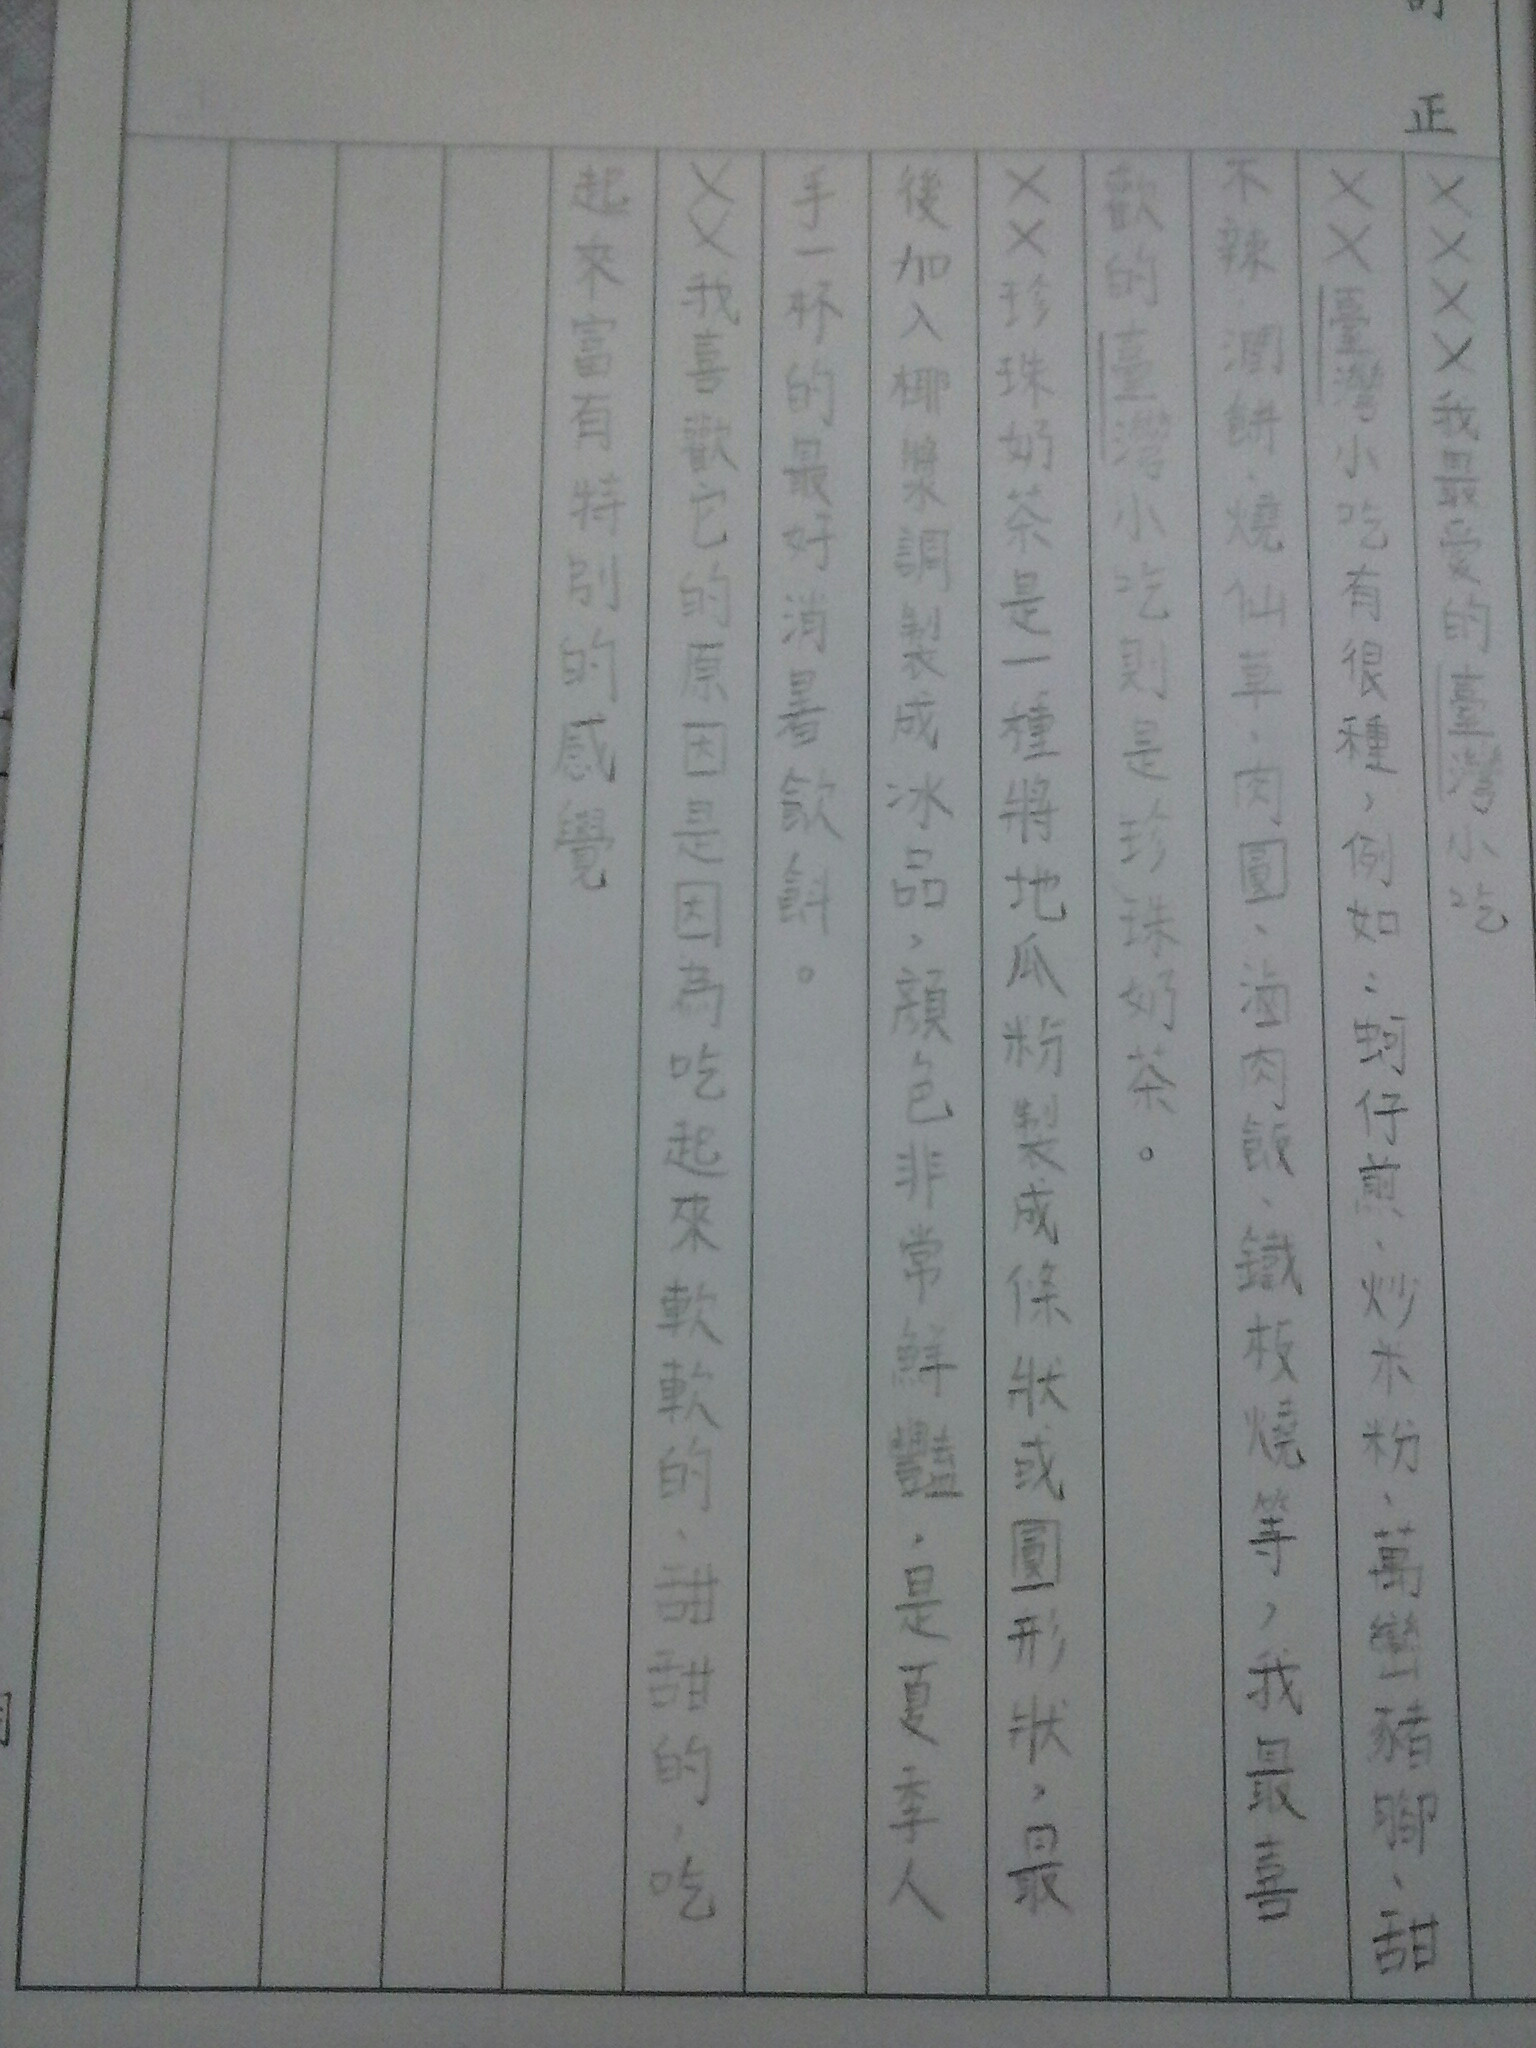 訂正
××××我最愛的臺灣小吃
××臺灣小吃有很種，例如：蚵仔煎、炒米粉、萬巒豬腳、甜
不辣、潤餅、燒仙草、肉圓、滷肉飯、鐵板燒等，我最喜
歡的臺灣小吃則是珍珠奶茶。
××珍珠奶茶是一種將地瓜粉製成條狀或圓形狀，最
後加入椰漿調製成冰品，顏色非常鮮豔，是夏季人
手一杯的最好消暑飲料。
××我喜歡它的原因是因為吃起來軟軟的、甜甜的，吃
起來富有特別的感覺